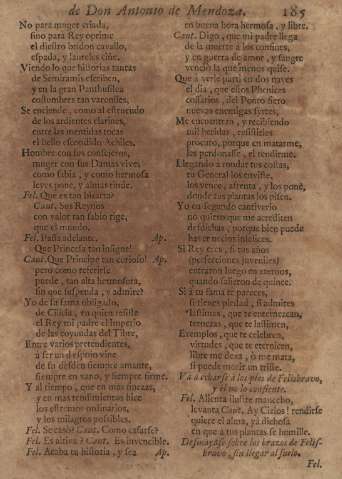 de Don Antonio de Mendoza. 185
No para muger criada,
sino para Rey oprime
el diestro bridon cavallo,
espada, y laureles ciñe.
Viendo lo que historias tantas
de Semiramis escriven,
y en la gran Panthasilea
costumbres tan varoniles,
Se enciende, como al estruendo
de los ardientes clarines,
entre las mentidas tocas
el bello escondido Achiles.
Hombre con sus consejeros,
muger con sus Damas vive,
como sabia, y como hermosa
leyes pone, y almas rinde.
Fel. Que es tan bizarra?
Caut. Sus Reynos
con valor tan sabio rige,
que el mundo.
Fel. Passa adelante. Ap.
Que Princesa tan insigne!
Caut. Que Principe tan curioso! Ap.
pero como referirle
puede, tan alta hermosura,
sin que suspenda, y admire?
Yo de su fama obligado,
de Cilicia, en quien reside
el Rey mi padre el Imperio
de las coyundas del Tibre,
Entre varios pretendientes,
à ser un despojo vine
de su desden siempre amante,
siempre en vano, y siempre firme.
Y al tiempo, que en mas finezas,
y en mas rendimientos hize
los estremos ordinarios,
y los milagros possibles.
Fel. Se casò? Caut. Como casarse?
Fel. Es altiva? Caut. Es invencible.
Fel. Acaba tu historia, y sea Ap.
en buena hora hermosa, y libre.
Caut. Digo, que mi padre llega
de la muerte à los confines,
y en guerra de amor, y sangre
vendo la que menos quise.
Que à verle partì en dos naves
el dia, que essos Phenices
cossarios, del Ponto fiero
nuevas enemigas syrtes,
Me encuentran, y recibiendo
mil heridas, resisteles
procuro, porque en matarme,
les perdonasse, el rendirme.
Llegando à rondar tus costas,
tu General los enviste,
los vence, afrenta, y los pone,
donde tus plantas los pisen.
Yo en segundo cautiverio
no quiero que me acrediten
desdichas, porque bien puede
haver necios infelices.
Si Rey eres, si tus años
(perfecciones juveniles)
entraron luego en eternos,
quando salieron de quince.
Si à tu fama te pareces,
si tienes piedad, si admites
lastimas, que te enternezcan,
ternezas, que te lastimen,
Exemplos, que te celebren,
virtudes, que te eternicen,
libre me dexa, ò me mata,
si puede morir un triste.
Và à echarse à los pies de Felisbravo,
y el no lo consiente.
Fel. Alienta ilustre mancebo,
levanta Caut. Ay Cielos! rendirse
quiere el alma, yà dichosa
en que à tus plantas se humille.
Desmayase sobre los brazos de Felis-
bravo, sin llegar al suelo.
Fel.